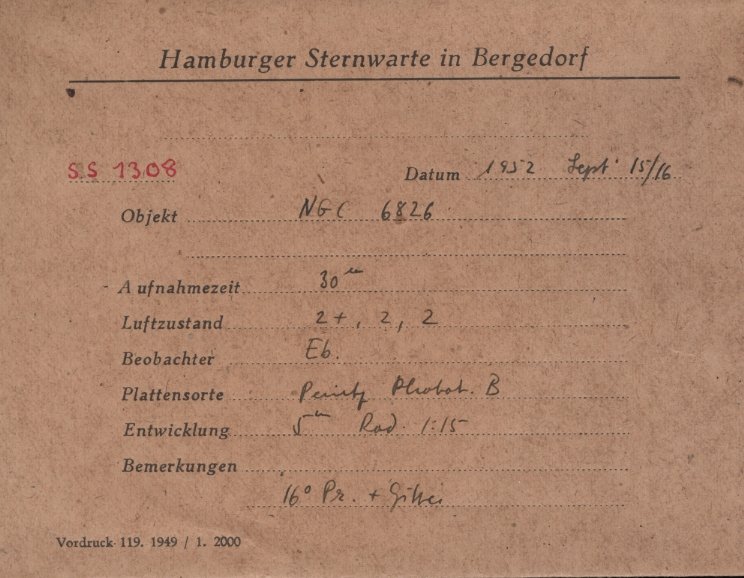 Hamburger Sternwarte in Bergedorf
SS 1308 Datum 1952 Sept 15/16
Objekt NGC 6826
Aufnahmezeit 30ᵐ
Luftzustand 2+, 2, 2
Beobachter Eb.
Plattensorte Perutz Phobot. B
Entwicklung 5ᵐ Rod. 1:15
Bemerkungen
16° Pr. + Gitter
Vordruck 119. 1949 / 1. 2000